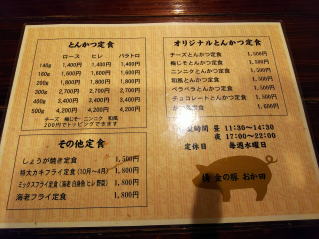 とんかつ定食
ロース ヒレ バラトロ
140g 1,400円 1,400円 1,400円
160g 1,600円 1,600円 1,600円
200g 1,800円 1,800円 1,800円
300g 2,700円 2,700円 2,700円
400g 3,400円 3,400円 3,400円
500g 4,200円 4,200円 4,200円
チーズ 梅じそ ニンニク 和風
200円でトッピングできます
その他定食
しょうが焼き定食 1,500円
特大カキフライ定食(10月~4月) 1,800円
ミックスフライ定食(海老 白身魚 ヒレ 野菜) 1,800円
海老フライ定食 1,800円
オリジナルとんかつ定食
チーズとんかつ定食 1,500円
梅じそとんかつ定食
ニンニクとんかつ定食
和風とんかつ定食
ペラペラとんかつ定食
チョコレートとんかつ定食
営業時間 昼 11:30~14:30
夜 17:00~22:00
定休日 毎週水曜日
金の豚 おか田